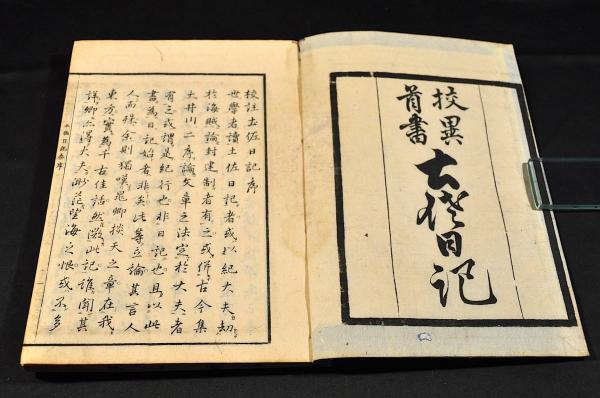 校異
首書
土佐日記
校註土佐日記序
世學者讀土佐日記者或以紀大夫劫
於海賊論封建制者有之或併古今集
大井川二序論文章之法定於大夫者
有之或謂是紀行也非日記也且以此
書為日記始者非矣此等立論其言人
人而殊余則獨嘆晁卿掞天之章在我
東方實為千古佳話然微此記誰聞其
詳卿亦得大夫渺茫望海之恨或不多